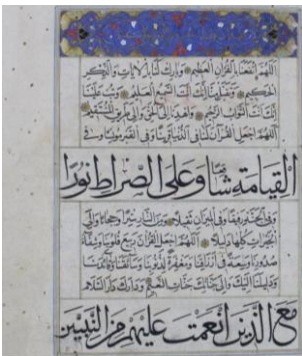 اللهم انفعنا بالقرآن العظيم وبارك لنا بالآيات والذكر
الحكيم وتقبل منا إنك أنت السميع العليم وتب علينا
إنك أنت التواب الرحيم واهدنا إلى الحق وإلى طريق مستقيم
اللهم اجعل القرآن لنا في الدنيا قرينا وفي القبر مونسا وفي
القيامة شافعا وعلى الصراط نورا
وفي الجنة رفيقا وفي الميزان ثقيلا ومن النار سترا وحجابا وإلى
الخيرات كلها دليلا اللهم اجعل القرآن ربيع قلوبنا وشفاء
صدورنا
إليك وإلى جنانك جنات النعيم ودارك دار السلام
مع الذين انعمت عليهم من النبيين